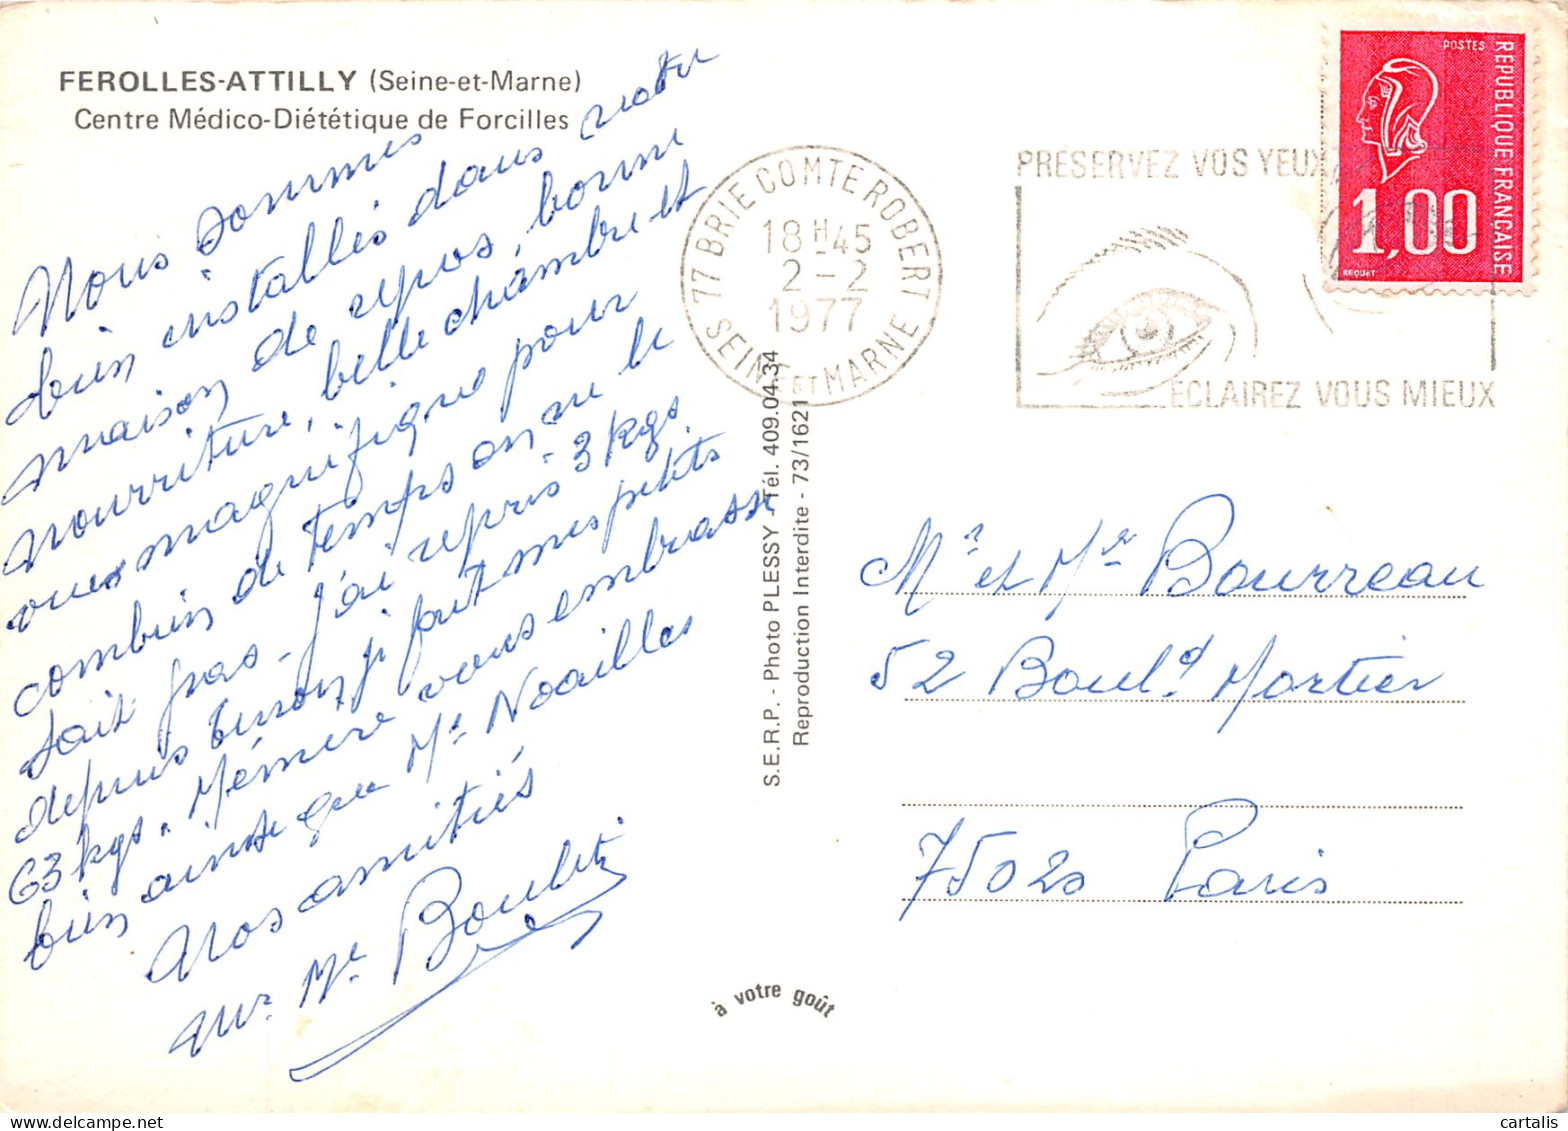 FEROLLES-ATTILLY (Seine-et-Marne)
Centre Médico-Diététique de Forcilles
Nous sommes
bien installés dans notre
maison de repos, bonne
nourriture, belle chambre et
vue magnifique pour
combien de temps on ne le
sait pas - J'ai repris 3 kgs.
depuis j fait mes petits
63 kgs. Mémère vous embrasse
bien ainsi que Me Noailles
Nos amitiés
Mr Me
S.E.R.P. - Photo PLESSY - Tél. 409.04.34
Reproduction Interdite - 73/1621
à votre goût
77 BRIE COMTE ROBERT
18 H 45
2 - 2
1977
SEINE et MARNE
PRÉSERVEZ VOS YEUX
ÉCLAIREZ VOUS MIEUX
POSTES
REPUBLIQUE FRANÇAISE
1,00
BEQUET
Mr et Me Bourreau
52 Boul.d Mortier
75020 Paris
cartalis